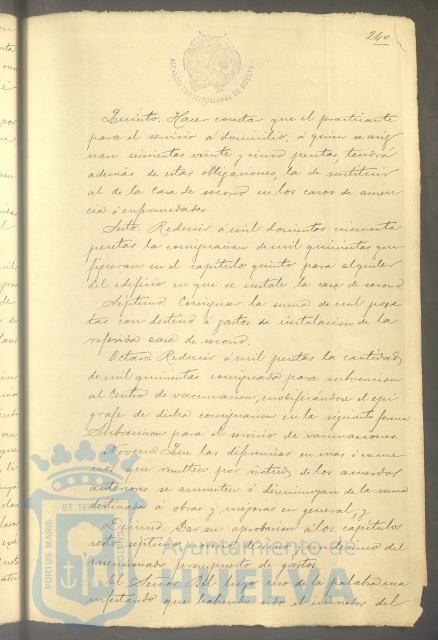 240
ALCALDIA CONSTITUCIONAL DE HUELVA
Quinto. Hacer constar que el practicante
para el servicio á domicilio, á quien se asig
nan seiscientas veinte y cinco pesetas tendrá
además de estas obligaciones, la de sustituir
al de la Casa de socorro en los casos de ausen
cia ó enfermedades
Sesto. Reducir á mil doscientas cincuenta
pesetas la consignacion de mil quinientas que
figuran en el capítulo quinto para alquiler
del edificio en que se instale la casa de socorro
Séptimo. Consignar la suma de mil pese
tas con destino á gastos de instalacion de la
referida casa de socorro.
Octavo. Reducir á mil pesetas la cantidad
de mil quinientas consignada para subvencion
al Centro de vacunacion, modificándose el epí
grafe de dicha consignacion en la siguiente forma
Subvencion para el servicio de vacunaciones
Noveno. Que las diferencias en mas ó en me
nos que resulten por virtud de los acuerdos
anteriores se aumenten ó disminuyan de la suma
destinada á obras y mejoras en general, y
Décimo. Dar su aprobacion á los capítulos
sesto séptimo noveno décimo y undécimo del
mencionado presupuesto de gastos.
El Señor Bel hizo uso de la palabra ma
nifestando que habiendo sido el iniciador del
PORTUS MARIS ET TERRAE CUSTODIA
Ayuntamiento de
HUELVA